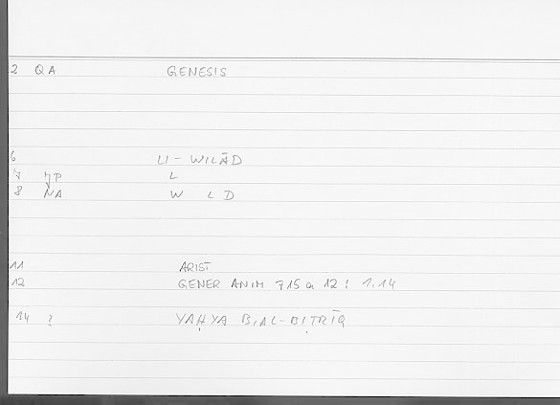 2 QA GENESIS
6 LI - WILĀD
7 JP L
8 NA W L D
11 ARIST
12 GENER ANIM 715 a 12 : 1.14
14 ? YAḤYA B. AL-BIṬRĪQ